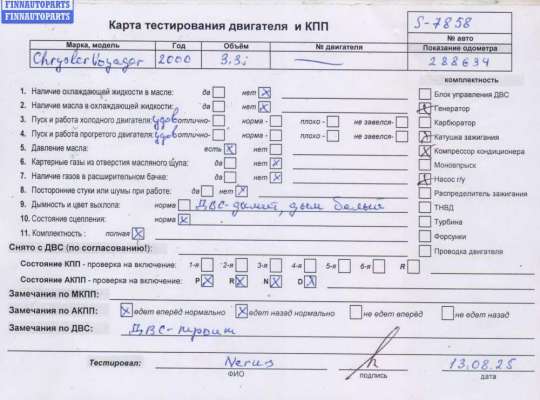 FINNAUTOPARTS
FINNAUTOPARTS
FINNAUTOPARTS
Карта тестирования двигателя и КПП
S-7858
№ авто
Марка, модель Год Объём № двигателя Показание одометра
Chrysler Voyager 2000 3,3i — 288634
комплектность
1. Наличие охлаждающей жидкости в масле: да нет X
Блок управления ДВС
2. Наличие масла в охлаждающей жидкости: да нет X
Генератор
3. Пуск и работа холодного двигателя: удов отлично- норма - плохо - не завелся-
Карбюратор
4. Пуск и работа прогретого двигателя: удов отлично- норма - плохо - не завелся-
Катушка зажигания
5. Давление масла: есть X нет
Компрессор кондиционера
6. Картерные газы из отверстия масляного щупа: да нет X
Моновпрыск
7. Наличие газов в расширительном бачке: да нет X
Насос г/у
8. Посторонние стуки или шумы при работе: да нет X
Распределитель зажигания
9. Дымность и цвет выхлопа: норма ДВС-дымит, дым белый
ТНВД
10. Состояние сцепления: норма X
Турбина
11. Комплектность : полная X
Форсунки
Снято с ДВС (по согласованию!):
Проводка двигателя
Состояние КПП - проверка на включение: 1-я 2-я 3-я 4-я 5-я 6-я R
Состояние АКПП - проверка на включение: P X R X N X D X
Замечания по МКПП:
Замечания по АКПП: X едет вперёд нормально X едет назад нормально не едет вперёд не едет назад
Замечания по ДВС: ДВС-троит
Тестировал: Nerus 13.08.25
ФИО подпись дата